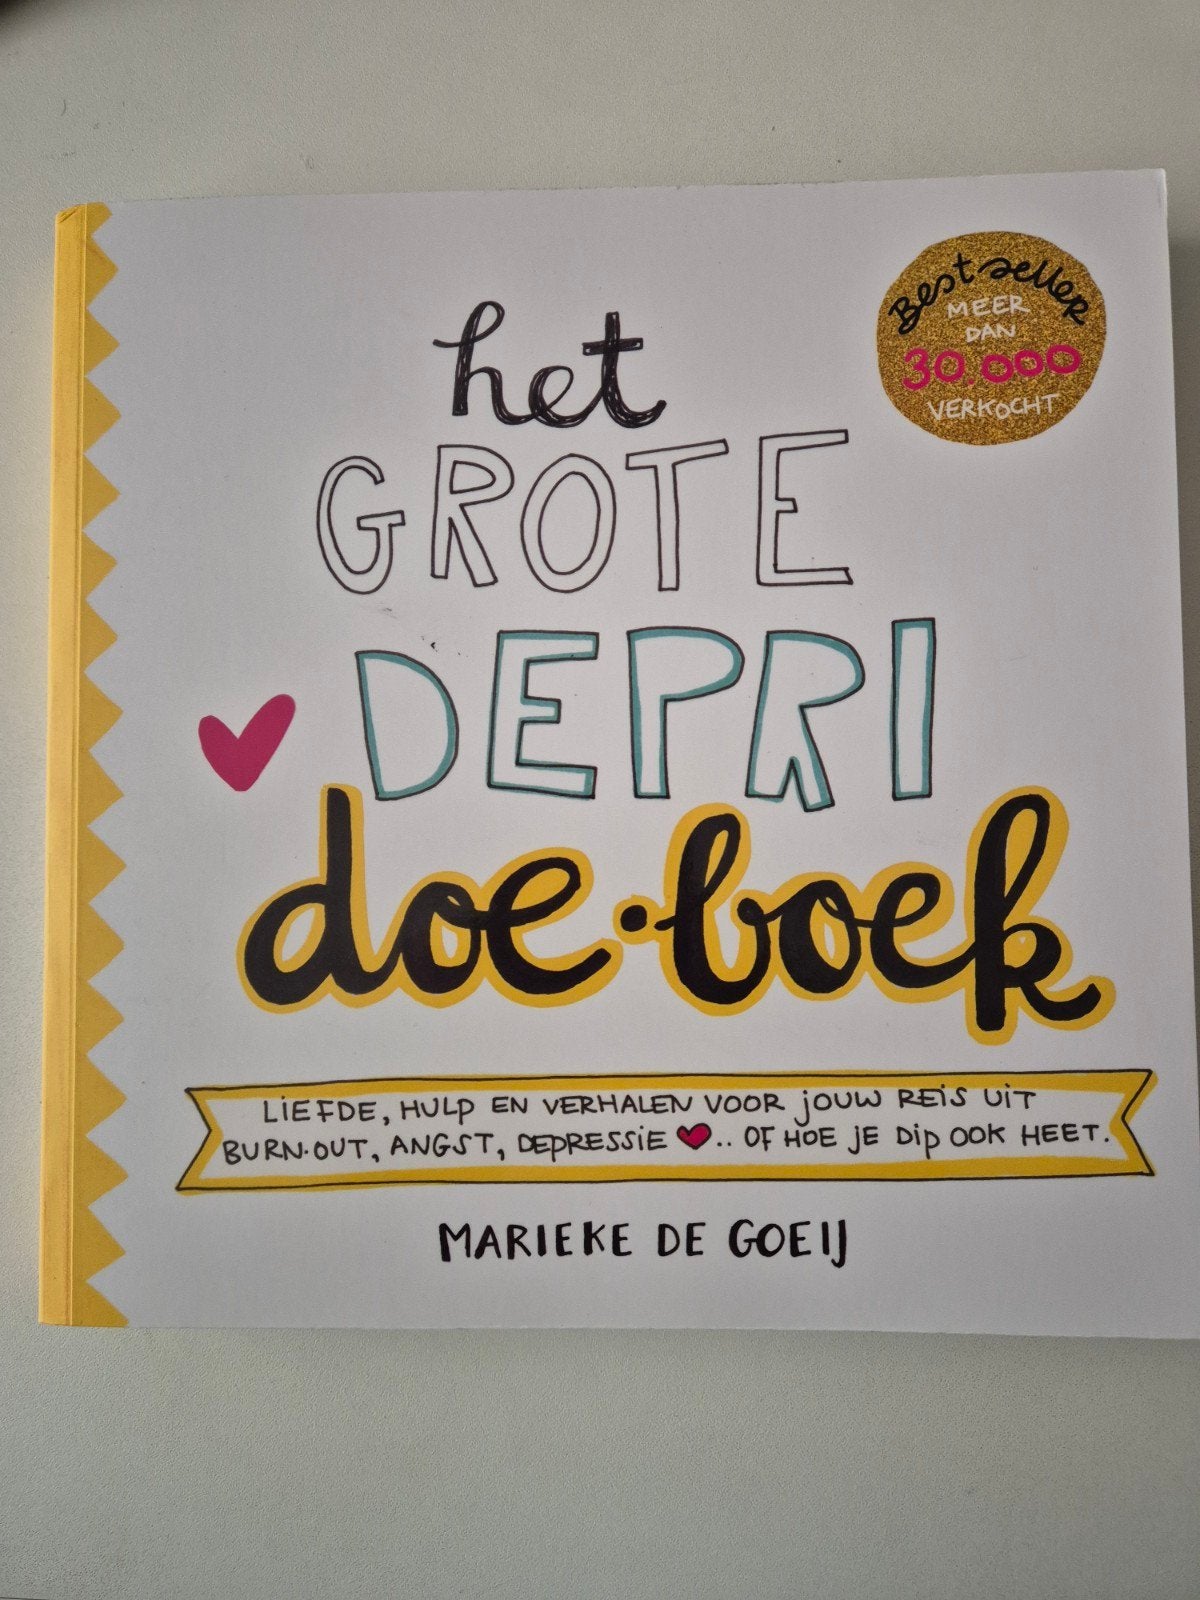 Bestseller
MEER
DAN
30.000
VERKOCHT
het
GROTE
DEPRI
doe·boek
LIEFDE, HULP EN VERHALEN VOOR JOUW REIS UIT
BURN·OUT, ANGST, DEPRESSIE ♥.. OF HOE JE DIP OOK HEET.
MARIEKE DE GOEIJ